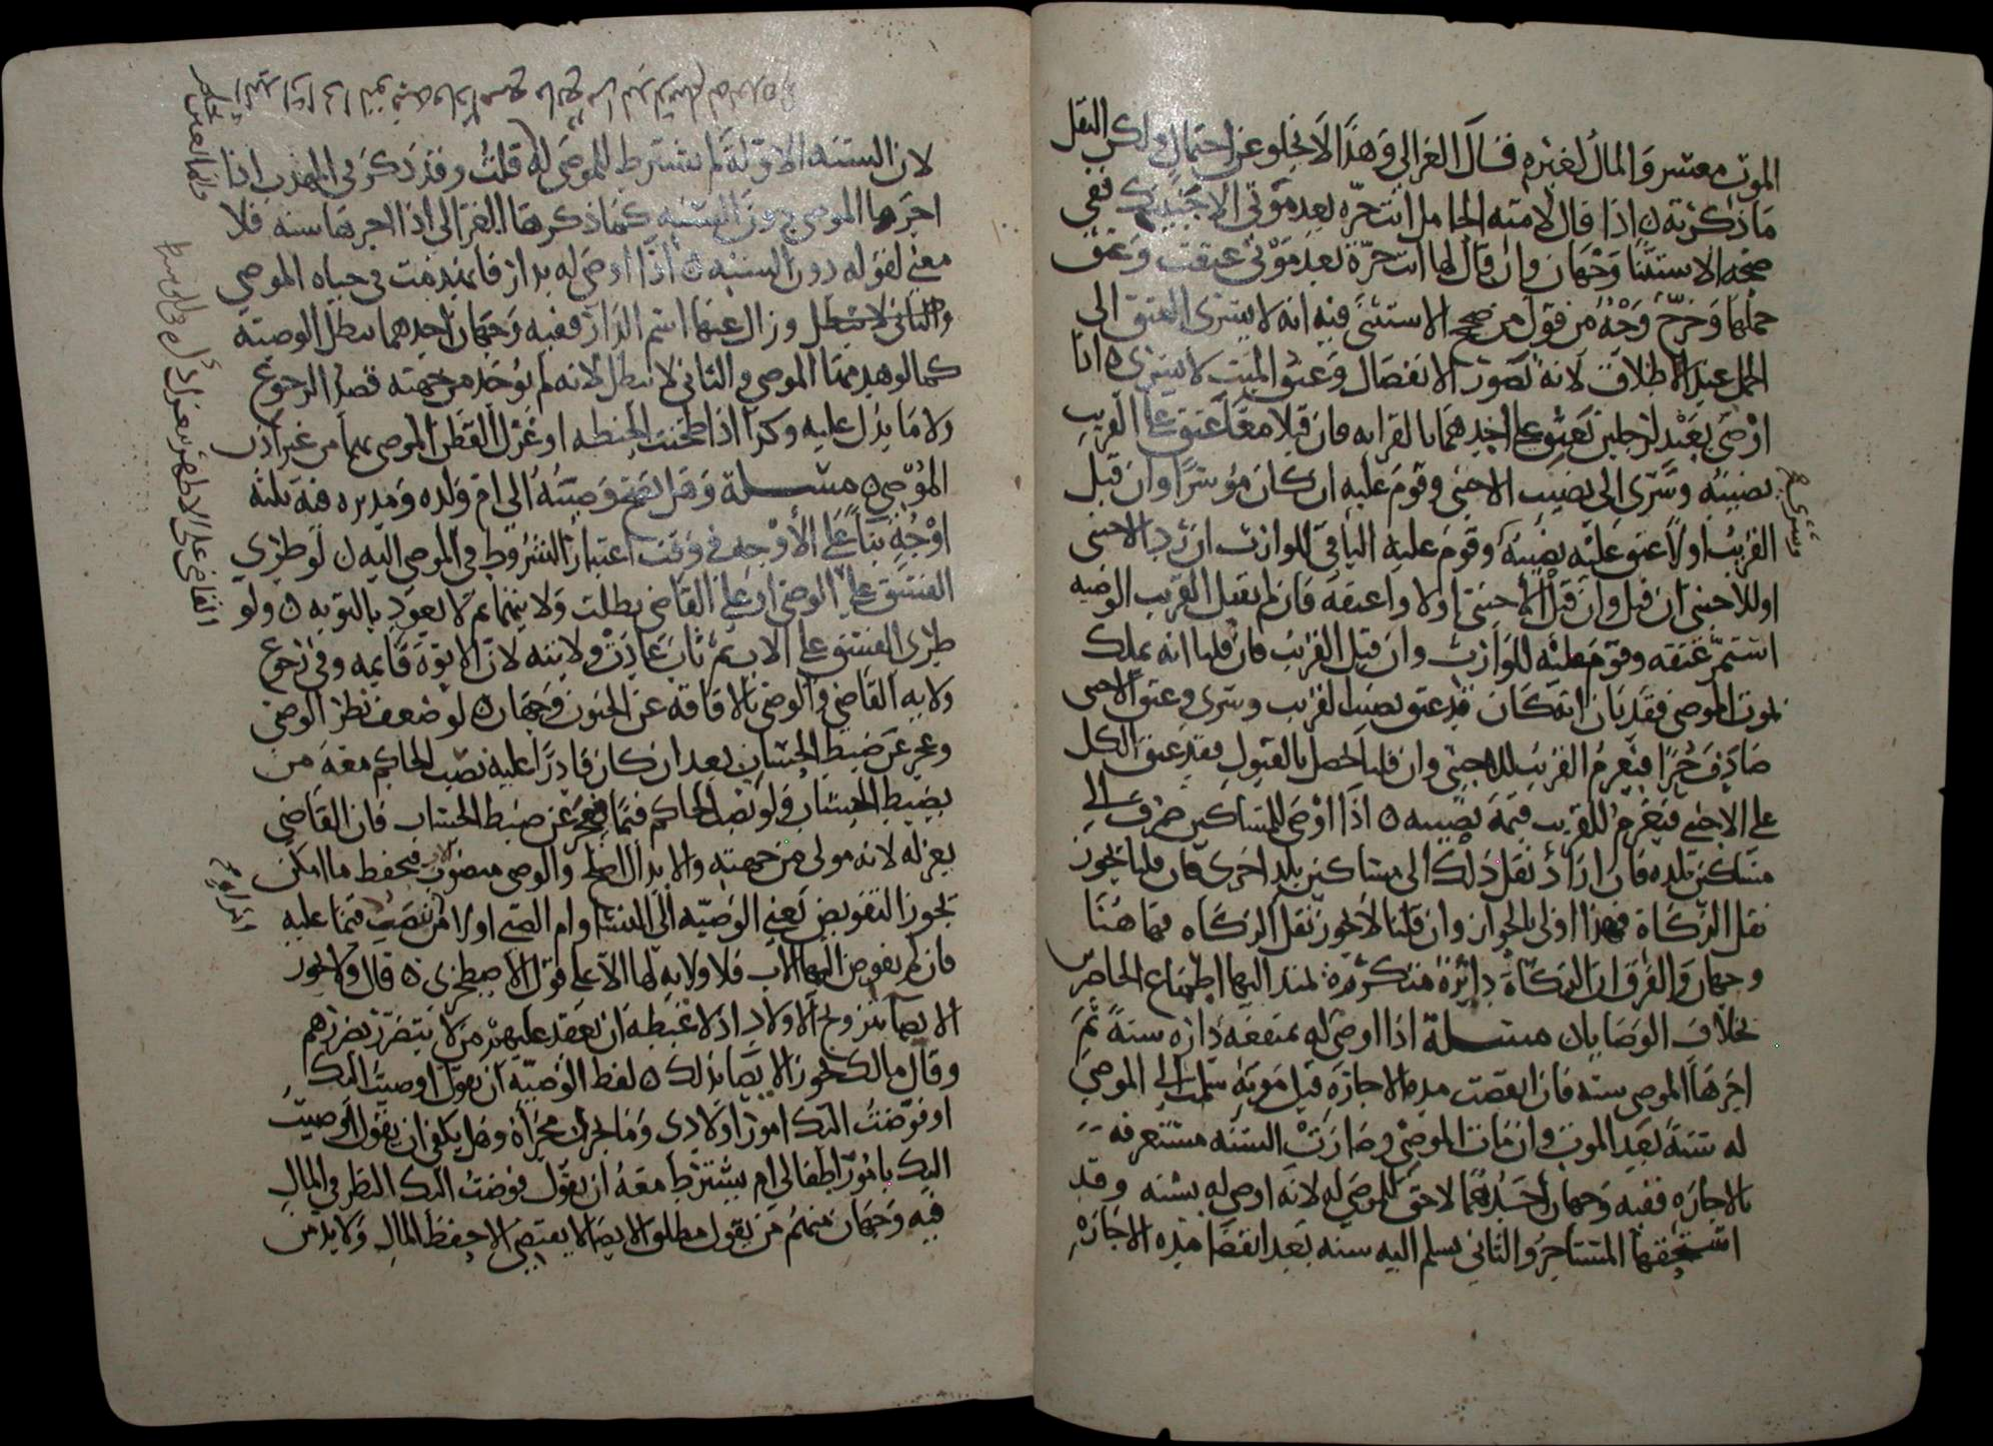 الموت معسر والمال لغيره قال الغزالي وهذا لا يخلو عن احتمال ولكن النقل
ما ذكرته ه اذا قال لامته الحامل انت حرة بعد موتي الا جنينك ففي
صحه الاستثنا وجهان وان قال لها انت حرة بعد موتي عتقت وعتق
حملها وخرج وجه من قول من صحح الاستثنى فيه انه لا يسري العتق الى
الحمل عند الاطلاق لانه تصور الانفصال وعتق الميت لا يسري ه اذا
اوصى بعبد لرجلين يعتق على احدهما بالقرابه فان قبلا معا عتق على القريب
نصيبه وسرى الى نصيب الاجنبي وقوم عليه ان كان موسرا وان قبل
القريب اولا عتق عليه نصيبه وقوم عليه الباقي للوارث ان رد الاجنبي
او للاجنبي ان قبل وان قبل الاجنبي اولا واعتقه فان لم يقبل القريب الوصيه
استمر عتقه وقوم عليه للوارث وان قبل القريب فان قلنا انه يملك
بموت الموصي فقد بان انه كان قد عتق نصيب القريب وسرى وعتق الاجنبي
صادف حرا فيغرم القريب للاجنبي وان قلنا تحصل بالقبول فقد عتق الكل
على الاجنبي فيغرم للقريب قيمة نصيبه ه اذا اوصى للمساكين صرف الى
مساكين بلده فان اراد نقل ذلك الى مساكين بلد اخرى فان قلنا يجوز
نقل الزكاة فهذا اولى بالجواز وان قلنا لا يجوز نقل الزكاه فها هنا
وجهان والفرق ان الزكاة دائرة متكررة تمتد اليها اطماع الحاضرين
بخلاف الوصايا ه مسلة اذا اوصى له بمنفعه داره سنة ثم
اجرها الموصي سنه فان انقضت مدة الاجارة قبل موته سلمت الى الموصى
له سنة بعد الموت وان مات الموصي وصارت السنه مستغرقه
بالاجاره ففيه وجهان احدهما لا حق للموصى له لانه اوصى له بسنه وقد
استحقها المستاجر والثاني يسلم اليه سنه بعد انقضا مدة الاجارة
لان السنه الاولة لم تشترط للموصى له قلت وقد ذكر في المهذب اذا
اجرها الموصي دون السنه كما ذكرها الغزالي اذا اجرها سنه فلا
معنى لقوله دون السنه ه اذا اوصى له بدار فانهدمت في حياه الموصي
وزال عنها اسم الدار ففيه وجهان احدهما تبطل الوصية
كما لو هدمها الموصي والثاني لا تبطل لانه لم يوجد من جهته قصد الرجوع
ولا ما يدل عليه وكذا اذا طحنت الحنطه او غزل القطن الموصى بهما من غير اذن
الموصي ه مسلة وهل تصح وصيته الى ام ولده ومدبره فيه ثلثة
اوجه بنا على الاوجه في وقت اعتبار الشروط في الموصى اليه ه لو طرى
الفسق على الوصي او على القاضي بطلت ولايتهما ثم لا يعود بالتوبه ه ولو
طرى الفسق على الاب ثم تاب عادت ولايته لان الابوة قايمه وفي رجوع
ولايه القاضي والوصي بالافاقة عن الجنون وجهان ه لو ضعف نظر الوصي
وعجز عن ضبط الحساب بعد ان كان قادرا عليه نصب الحاكم معه من
يضبط الحساب ولو نصب الحاكم قيما فعجز عن ضبط الحساب فان القاضي
يعزله لانه مولى من جهته والوصي منصوب فيحفظ ما امكن
يجوز التفويض يعني الوصيه الى النسا وام الصبي اولى من تنصيب قيما عليه
فان لم يفوض اليها الاب فلا ولايه لها الا على قول الاصطخري ه قال ولا يجوز
الايصا بتزويج الاولاد اذ لا غبطه ان يعقد عليهن من لا يتضرر بضررهم
وقال مالك يجوز الايصا بذلك ه لفظ الوصية ان يقول اوصيت اليك
او فوضت اليك امور اولادي وما جرى مجراه وهل يكفي ان يقول اوصيت
اليك بامور اطفالي ام يشترط معه ان يقول فوضت اليك النظر في المال
فيه وجهان منهم من يقول مطلق الايصا لا يقتضي الا حفظ المال ولا بد من